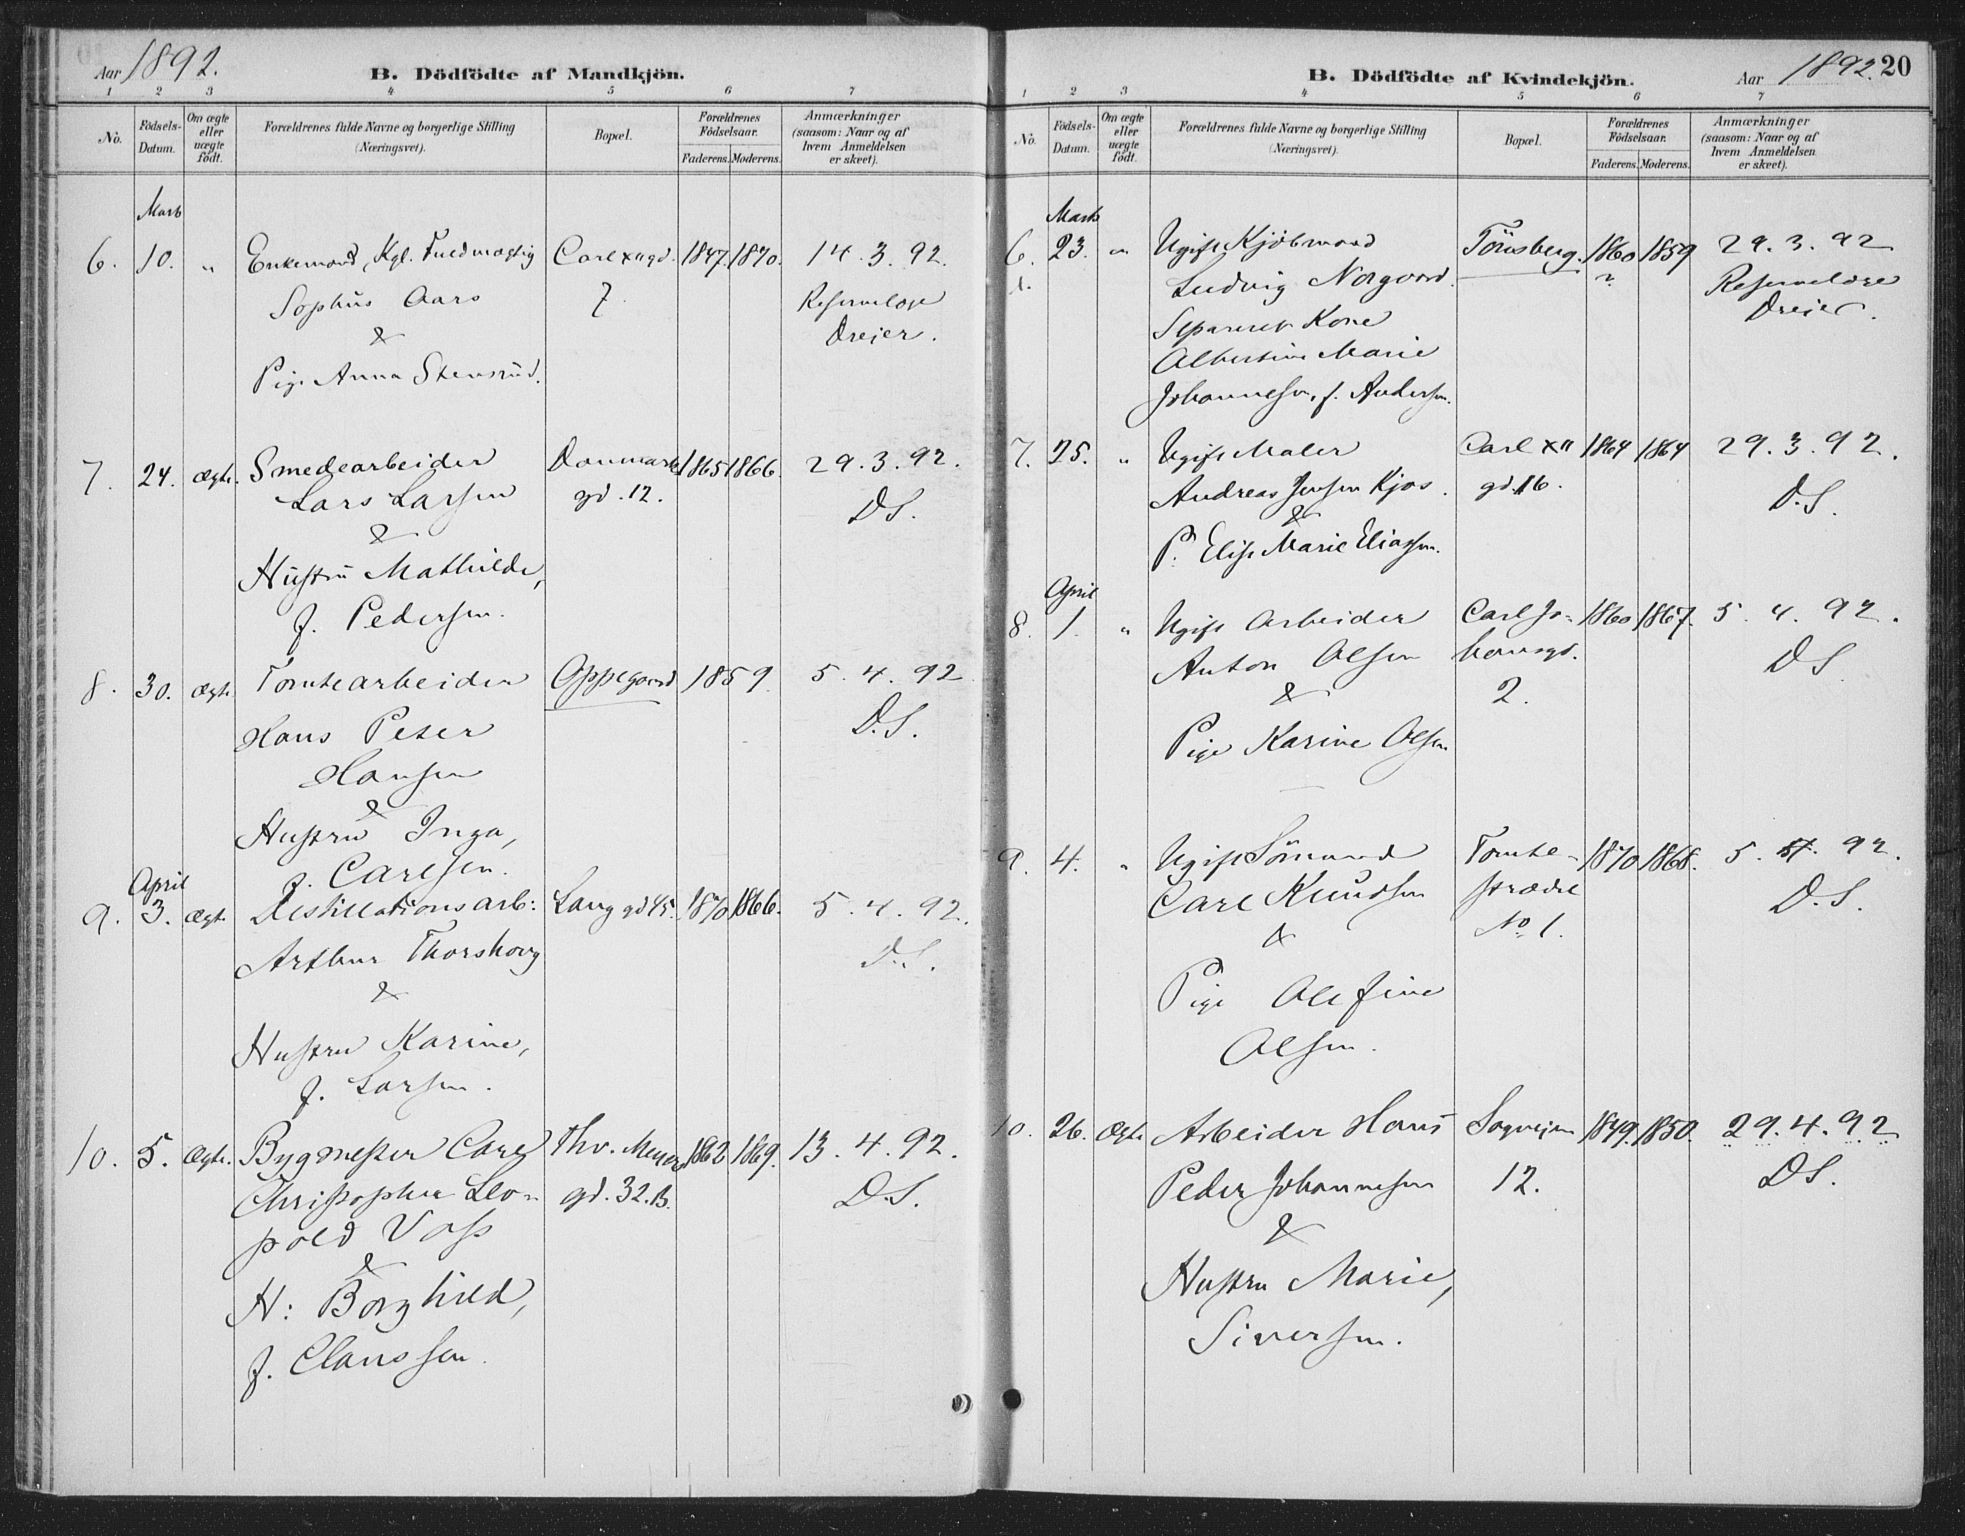 Aar 1892.
B. Dödfödte af Mandkjön.
1 2 3 4 5 6 7
No.
Födsels-Datum.
Om ægte eller uægte födt.
Forældrenes fulde Navne og borgerlige Stilling (Næringsvei).
Bopæl.
Forældrenes Födselsaar.
Faderens. Moderens.
Anmærkninger (saasom: Naar og af hvem Anmeldelsen er skeet).
Marts
6. 10. " Enkemand, Kgl. Fuldmægtig Carl XII gd. 1847. 1870. 14. 3. 92.
Sophus Aars 7. Reservelæge
& Dreier.
Pige Anna Stensrud.
7. 24. Ægte. Smedearbeider Danmarks 1865 1866. 29. 3. 92.
Lars Larsen gd. 12. D.S.
&
Hustru Mathilde,
f. Pedersen.
8. 30. Ægte Tomtearbeider Oppegaard 1859 5. 4. 92
Hans Peter D.S.
Hansen
&
Hustru Inga,
f. Carlsen.
April
9. 3. Ægte. Destillationsarb: Langgd 45. 1870 1866. 5. 4. 92.
Arthur Thorshaug D.S.
&
Hustru Karine,
f. Larsen.
10. 5. Ægte. Bygmester Carl Thv. Meyers 1862 1869. 13. 4. 92.
Christopher Leo- gd. 32.B. D.S.
pold Voss
&
H: Borghild,
f. Clanssen.
B. Dödfödte af Kvindekjön.
Aar 1892. 20
1 2 3 4 5 6 7
No.
Födsels-Datum.
Om ægte eller uægte födt.
Forældrenes fulde Navne og borgerlige Stilling (Næringsvei).
Bopæl.
Forældrenes Födselsaar.
Faderens. Moderens.
Anmærkninger (saasom: Naar og af hvem Anmeldelsen er skeet).
Marts
6. 23. " Ugift Kjöbmand Tönsberg. 1860 1859 29. 3. 92
Ludvig Norgaard. ? Reservelæge
Separeret Kone Dreier.
Albertine Marie
Johannesen, f. Andersen.
7. 25. " Ugift Maler Carl XII 1864 1864 29. 3. 92.
Andreas Jensen Kjos. gd. 16. D.S.
&
P. Elise Marie Eliassen.
April
8. 1. " Ugift Arbeider Carl Jo- 1860 1867. 5. 4. 92.
Anton Olsen hansgd. D.S.
& 2.
Pige Karine Olsen
9. 4. " Ugift Sömand Tomte- 1870 1868. 5. 4. 92.
Carl Knudsen strædet D.S.
& No 1.
Pige Olefine
Olsen.
10. 26. Ægte Arbeider Hans Sagveien 1849. 1850. 29. 4. 92
Peder Johannesen 12. D.S.
&
Hustru Marie,
Siversen.